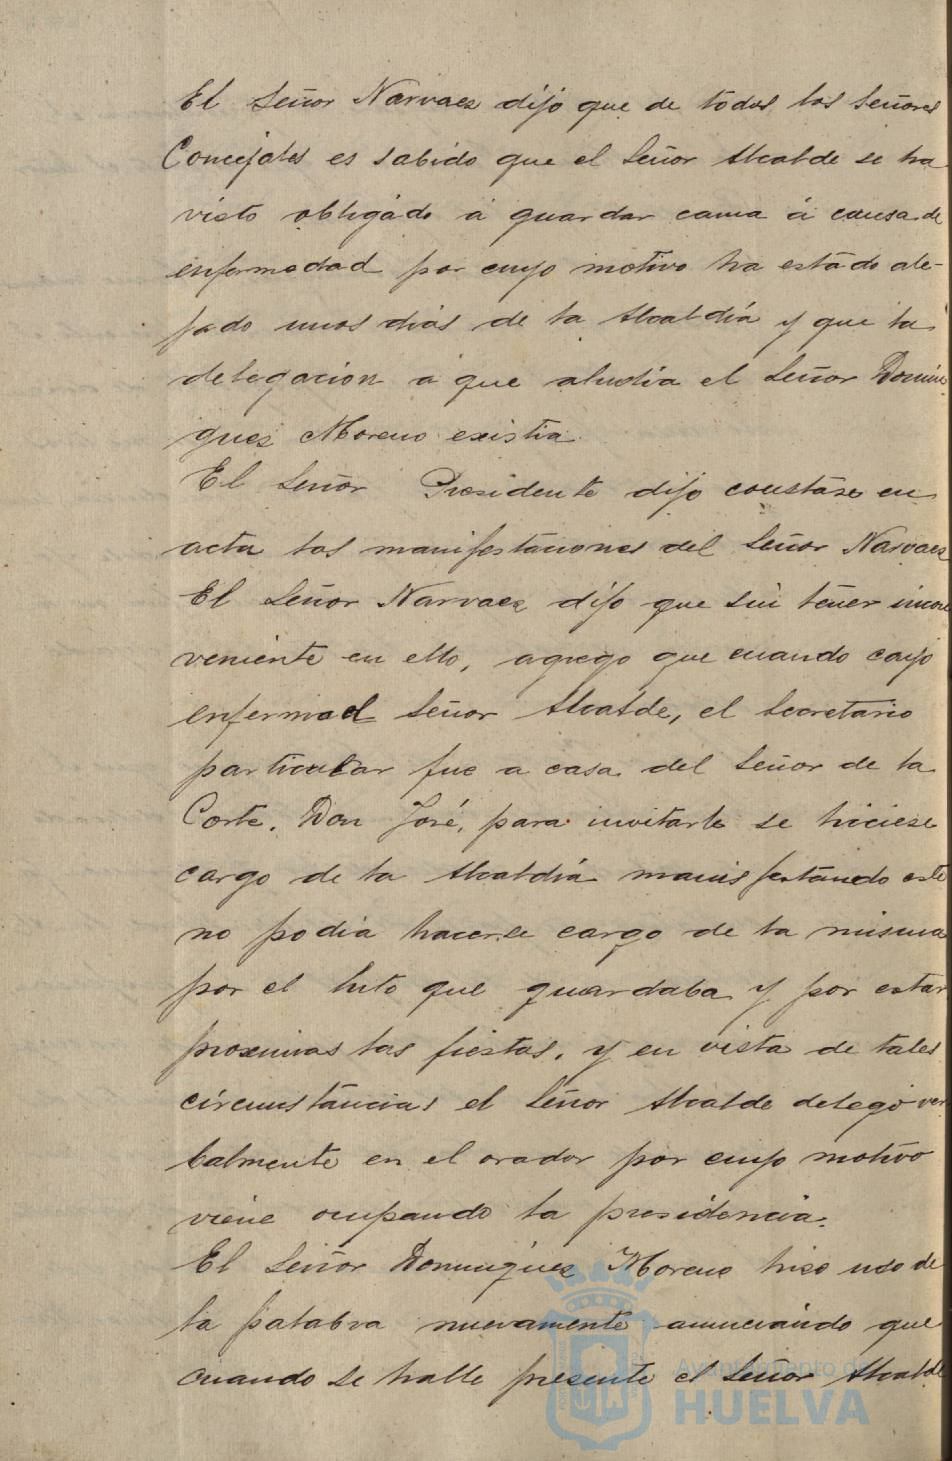 El Señor Narvaez dijo que de todos los Señores
Concejales es sabido que el Señor Alcalde se ha
visto obligado á guardar cama á causa de
enfermedad por cuyo motivo ha estado ale-
jado unos dias de la Alcaldía y que la
delegacion á que aludia el Señor Domin
guez Moreno existia.
El Señor Presidente dijo constase en
acta las manifestaciones del Señor Narvaez
El Señor Narvaez dijo que sin tener incon
veniente en ello, agrego que cuando cayo
enfermo el Señor Alcalde, el Secretario
particular fue a casa del Señor de la
Corte, Don José, para invitarle se hiciese
cargo de la Alcaldía manifestando este
no podia hacerse cargo de la misma
por el luto que guardaba y por estar
proximas las fiestas, y en vista de tales
circunstancias el Señor Alcalde delegó ver
balmente en el orador por cuyo motivo
viene ocupando la presidencia.
El Señor Dominguez Moreno hizo uso de
la palabra nuevamente anunciando que
cuando se halle presente el Señor Alcalde
Ayuntamiento de
HUELVA